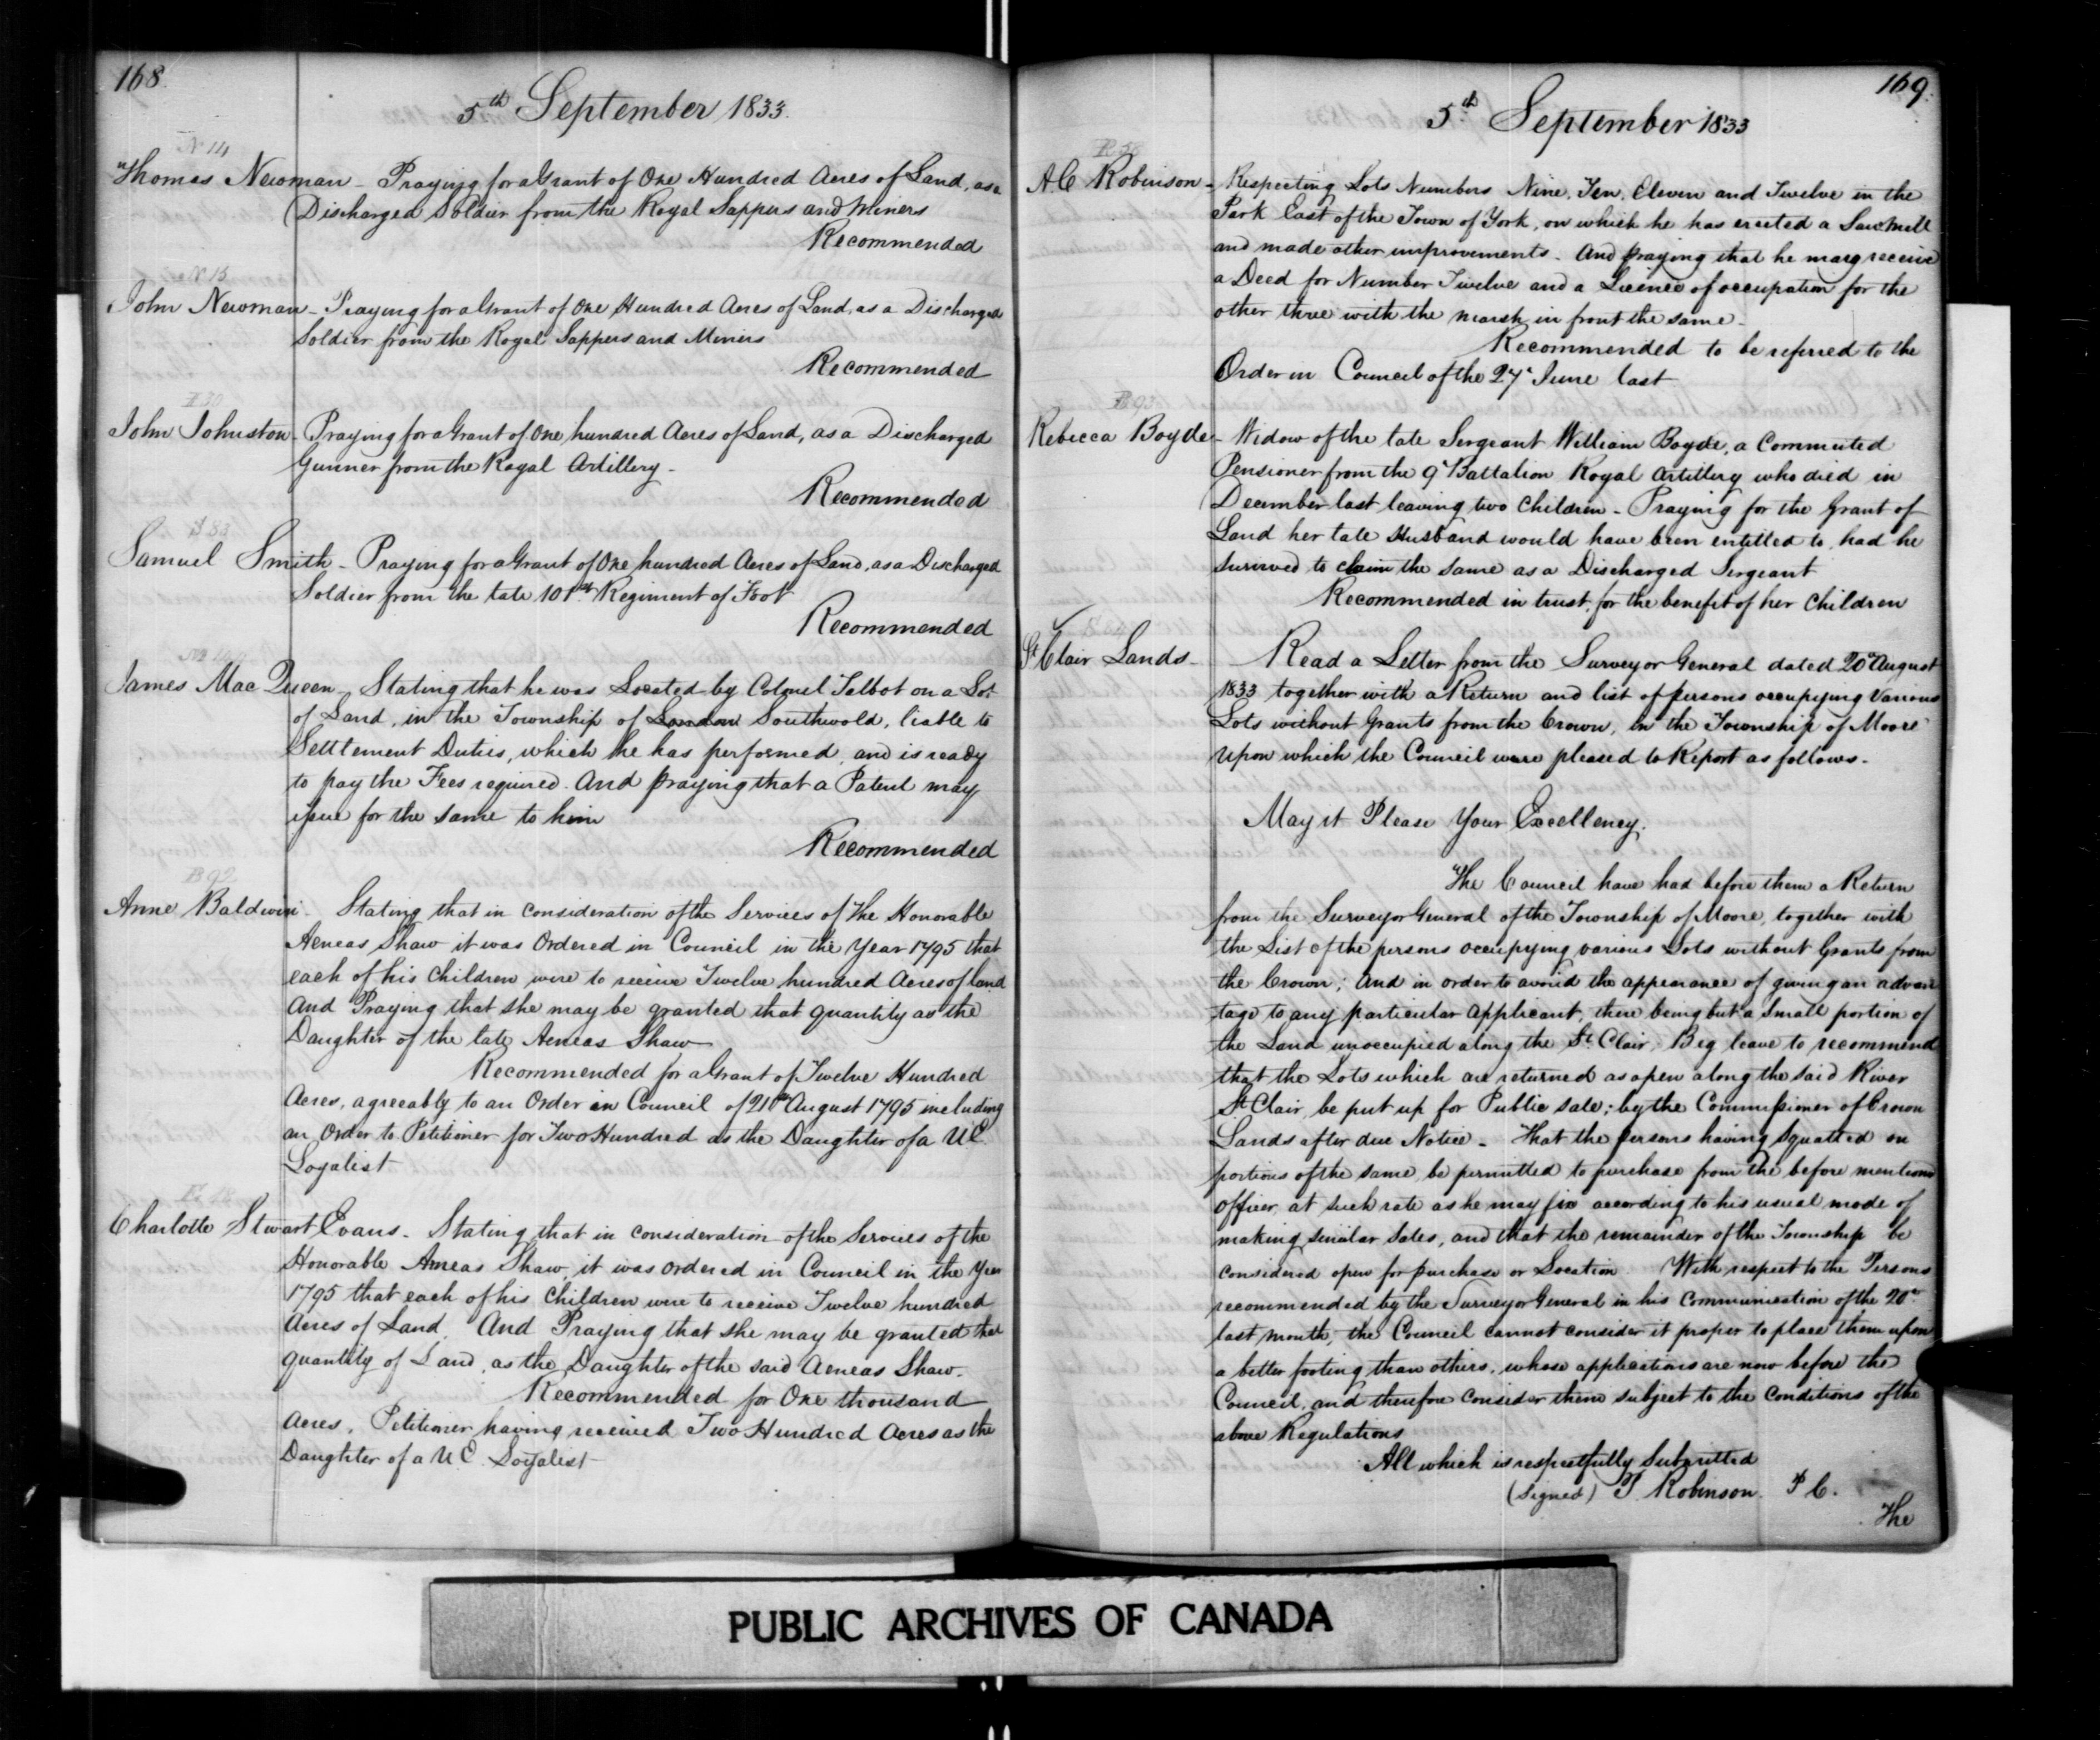 168
5th September 1833.
N 14
Thomas Newman - Praying for a Grant of One Hundred Acres of Land, as a
Discharged Soldier from the Royal Sappers and Miners
Recommended
N 15
John Newman - Praying for a Grant of One Hundred Acres of Land, as a Discharged
Soldier from the Royal Sappers and Miners
Recommended
John Johnston - Praying for a Grant of One hundred Acres of Land, as a Discharged
Gunner from the Royal Artillery -
Recommended
S 83
Samuel Smith - Praying for a Grant of One hundred Acres of Land, as a Discharged
Soldier from the late 101st Regiment of Foot
Recommended
James Mac Queen - Stating that he was Located by Colonel Talbot on a Lot
of Land, in the Township of London Southwold, liable to
Settlement Duties, which he has performed, and is ready
to pay the Fees required. And praying that a Patent may
issue for the same to him
Recommended
B 92
Anne Baldwin - Stating that in consideration of the Services of The Honorable
Aeneas Shaw it was Ordered in Council in the Year 1795 that
each of his Children were to receive Twelve hundred Acres of land
And Praying that she may be granted that quantity as the
Daughter of the late Aeneas Shaw
Recommended for a Grant of Twelve Hundred
Acres, agreeably to an Order in Council of 21st August 1795 including
an Order to Petitioner for Two Hundred as the Daughter of a U.E.
Loyalist
Charlotte Stuart Evans - Stating that in consideration of the Services of the
Honorable Aeneas Shaw, it was ordered in Council in the Year
1795 that each of his Children were to receive Twelve hundred
Acres of Land. And Praying that she may be granted that
quantity of Land, as the Daughter of the said Aeneas Shaw.
Recommended for One thousand
Acres, Petitioner having received Two Hundred Acres as the
Daughter of a U.E. Loyalist
169.
5th September 1833
A C Robinson - Respecting Lots Numbers Nine, Ten, Eleven and Twelve in the
Park East of the Town of York, on which he has erected a Saw Mill
and made other improvements. And praying that he may receive
a Deed for Number Twelve and a Licence of occupation for the
other three with the marsh in front the same -
Recommended to be referred to the
Order in Council of the 27th June last
B 93
Rebecca Boyde - Widow of the late Sergeant William Boyde, a Commuted
Pensioner from the 9th Battalion Royal Artillery who died in
December last leaving two Children - Praying for the Grant of
Land her late Husband would have been entitled to, had he
survived to claim the same as a Discharged Sergeant
Recommended in trust, for the benefit of her Children
St Clair Lands - Read a Letter from the Surveyor General dated 20th August
1833 together with a Return and list of persons occupying Various
Lots without Grants from the Crown, in the Township of Moore
Upon which the Council were pleased to Report as follows.
May it Please Your Excellency.
The Council have had before them a Return
from the Surveyor General of the Township of Moore, together with
the List of the persons occupying various Lots without Grants from
the Crown; And in order to avoid the appearance of giving an advan
tage to any particular Applicant, there being but a small portion of
the Land unoccupied along the St Clair, Beg leave to recommend
that the Lots which are returned as open along the said River
St Clair, be put up for Public sale; by the Commissioner of Crown
Lands after due Notice - That the persons having squatted on
portions of the same, be permitted to purchase from the before mentioned
officer, at such rate as he may fix according to his usual mode of
making similar Sales, and that the remainder of the Township be
considered open for purchase or Location. With respect to the Persons
recommended by the Surveyor General in his Communication of the 20th
last month, the Council cannot consider it proper to place them upon
a better footing than others, whose applications are now before the
Council, and therefore consider them subject to the Conditions of the
above Regulations
All which is respectfully Submitted
(Signed) P. Robinson. P C.
The
PUBLIC ARCHIVES OF CANADA